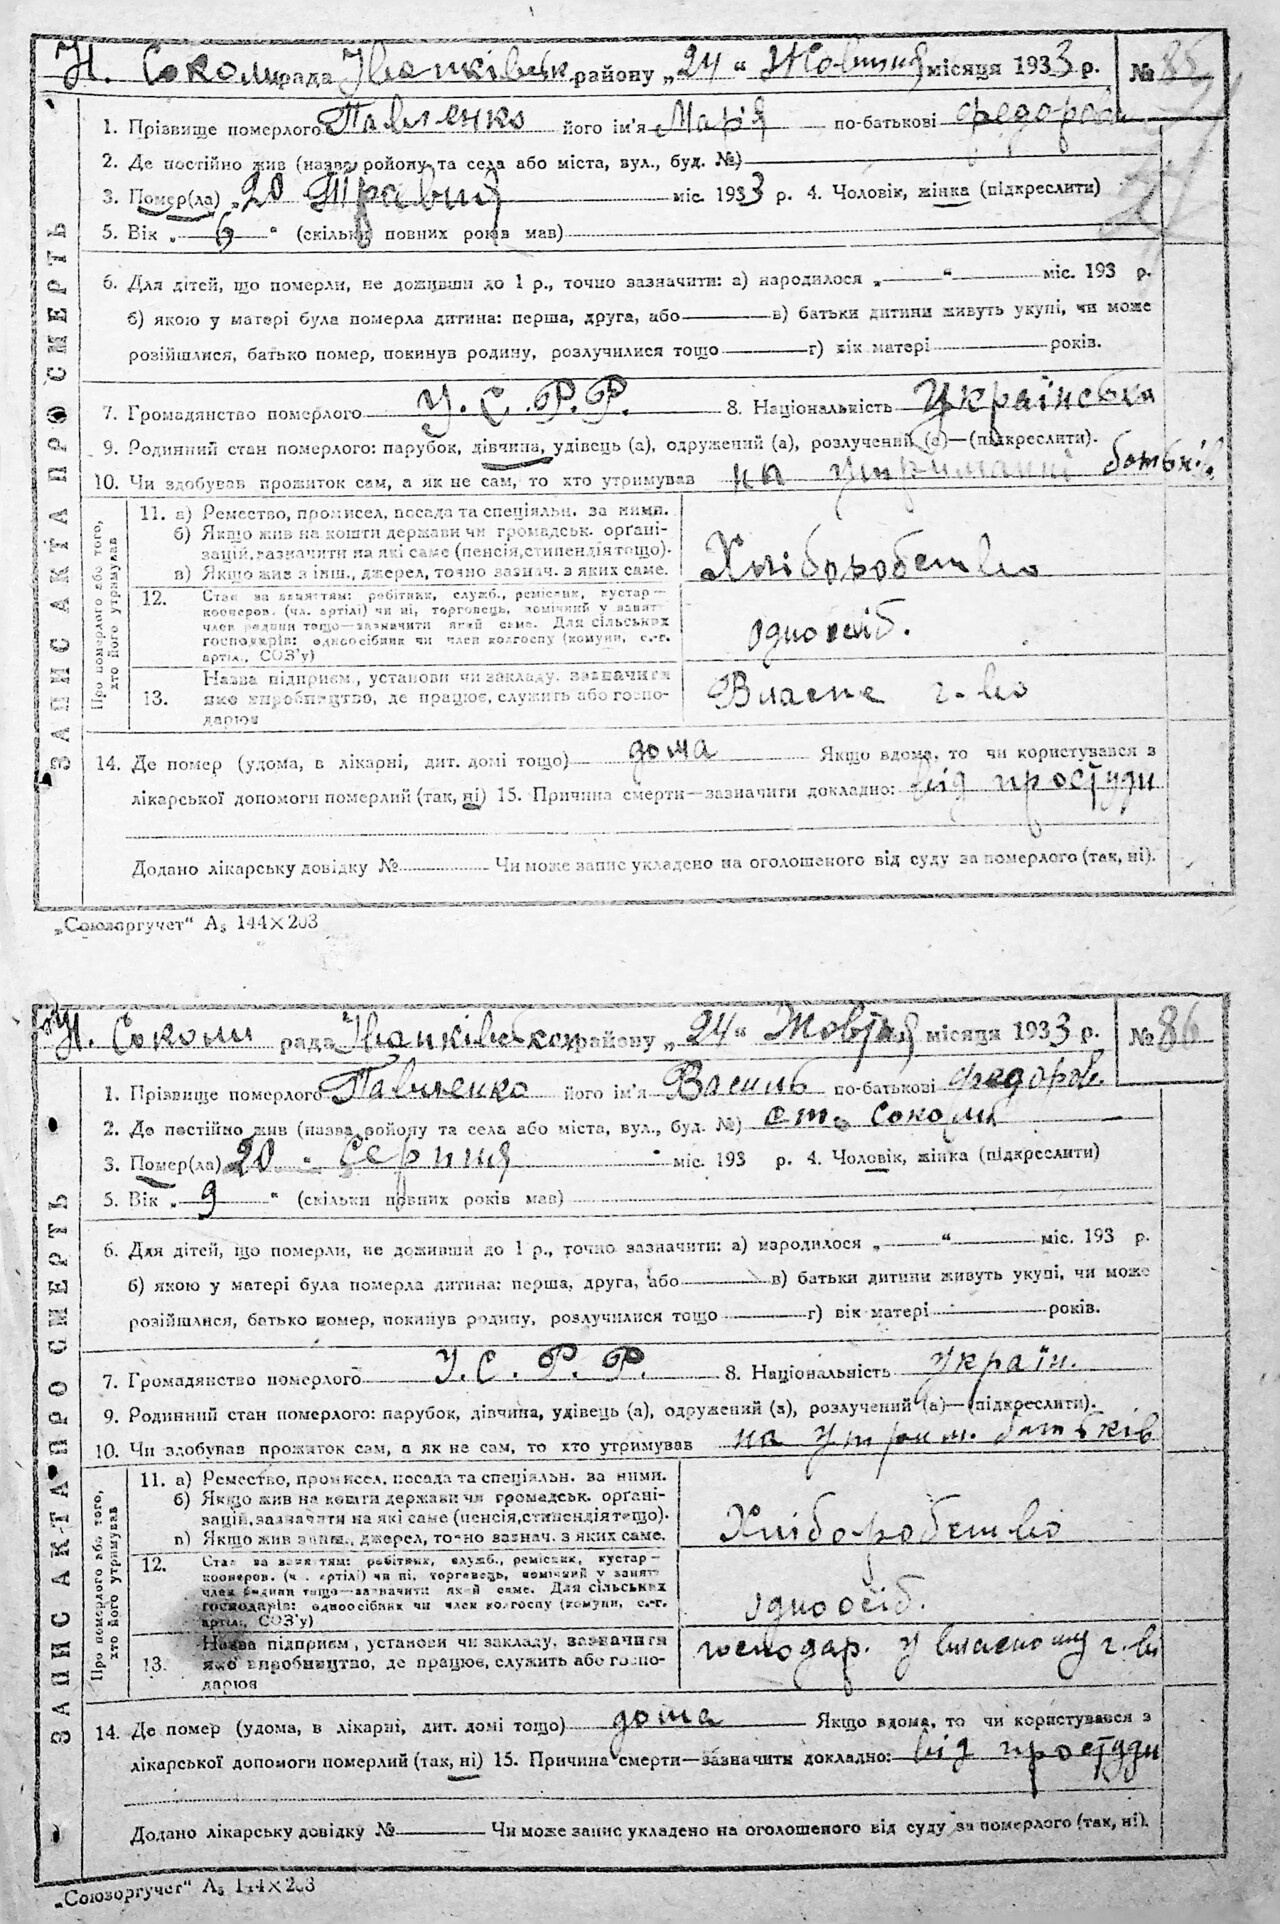 Н. Соколи рада Іванківськ району „24“ Жовтня місяця 1933 р. № 85
ЗАПИС АКТА ПРО СМЕРТЬ
1. Прізвище померлого Павленко його ім'я Марія по-батькові Федоров
2. Де постійно жив (назва ройону та села або міста, вул., буд. №)
3. Помер(ла) „20 Травня міс. 1933 р. 4. Чоловік, жінка (підкреслити)
5. Вік „ 6 “ (скільки повних років мав)
6. Для дітей, що померли, не доживши до 1 р., точно зазначити: а) народилося „ “ міс. 193 р.
б) якою у матері була померла дитина: перша, друга, або в) батьки дитини живуть укупі, чи може
розійшлися, батько помер, покинув родину, розлучилися тощо г) вік матері років.
7. Громадянство померлого У.С.Р.Р. 8. Національність Українська
9. Родинний стан померлого: парубок, дівчина, удівець (а), одружений (а), розлучений (а)—(підкреслити).
10. Чи здобував прожиток сам, а як не сам, то хто утримував на утриманні батьків
Про померлого або того, хто його утримував
11. а) Ремество, промисел, посада та спеціяльн. за ними.
б) Якщо жив на кошти держави чи громадськ. органі-
зацій, зазначити на які саме (пенсія, стипендія тощо).
в) Якщо жив з інш., джерел, точно зазнач. з яких саме.
Хліборобство
12. Стан за заняттям: робітник, служб., ремісник, кустар—
кооперов. (чл. артілі) чи ні, торговець, помічний у занят.
член родини тощо—зазначити який саме. Для сільських
господарів: одноосібник чи член колгоспу (комуни, с.-г.
артіл., СОЗ'у)
одноосіб.
13. Назва підприєм., установи чи закладу, зазначити
яке виробництво, де працює, служить або госпо-
дарює
Власне г-во
14. Де помер (удома, в лікарні, дит. домі тощо) дома Якщо вдома, то чи користувався з
лікарської допомоги померлий (так, ні) 15. Причина смерти—зазначити докладно: від простуди
Додано лікарську довідку № Чи може запис укладено на оголошеного від суду за померлого (так, ні).
„Союзоргучет“ А₅ 144×203
Н. Соколи рада Іванківською району „24“ Жовтня місяця 1933 р. № 86
ЗАПИС АКТА ПРО СМЕРТЬ
1. Прізвище померлого Павленко його ім'я Василь по-батькові Федоров
2. Де постійно жив (назва ройону та села або міста, вул., буд. №) ст. Соколи
3. Помер(ла) 20 Серпня міс. 193 р. 4. Чоловік, жінка (підкреслити)
5. Вік „ 9 “ (скільки повних років мав)
6. Для дітей, що померли, не доживши до 1 р., точно зазначити: а) народилося „ “ міс. 193 р.
б) якою у матері була померла дитина: перша, друга, або в) батьки дитини живуть укупі, чи може
розійшлися, батько помер, покинув родину, розлучилися тощо г) вік матері років.
7. Громадянство померлого У.С.Р.Р. 8. Національність україн.
9. Родинний стан померлого: парубок, дівчина, удівець (а), одружений (а), розлучений (а)—(підкреслити).
10. Чи здобував прожиток сам, а як не сам, то хто утримував на утрим. батьків
Про померлого або того, хто його утримував
11. а) Ремество, промисел, посада та спеціяльн. за ними.
б) Якщо жив на кошти держави чи громадськ. органі-
зацій, зазначити на які саме (пенсія, стипендія тощо).
в) Якщо жив з інш., джерел, точно зазнач. з яких саме.
Хліборобство
12. Стан за заняттям: робітник, служб., ремісник, кустар—
кооперов. (чл. артілі) чи ні, торговець, помічний у занят.
член родини тощо—зазначити який саме. Для сільських
господарів: одноосібник чи член колгоспу (комуни, с.-г.
артіл., СОЗ'у)
одноосіб.
13. Назва підприєм., установи чи закладу, зазначити
яке виробництво, де працює, служить або госпо-
дарює
господар. у власному г-ві
14. Де помер (удома, в лікарні, дит. домі тощо) дома Якщо вдома, то чи користувався з
лікарської допомоги померлий (так, ні) 15. Причина смерти—зазначити докладно: від простуди
Додано лікарську довідку № Чи може запис укладено на оголошеного від суду за померлого (так, ні).
„Союзоргучет“ А₅ 144×203